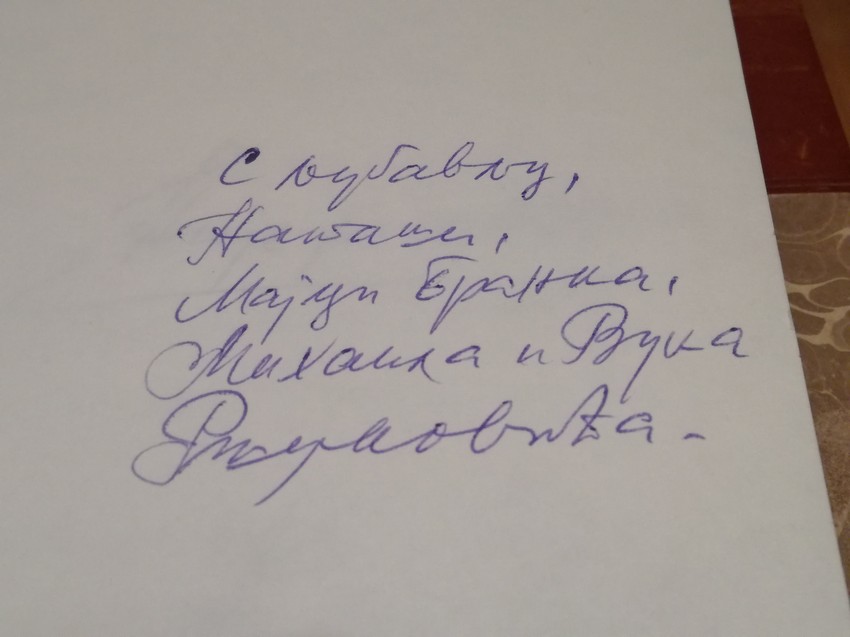 С љубављу,
Наташи,
Мајци Бранка,
Михаила и Вука